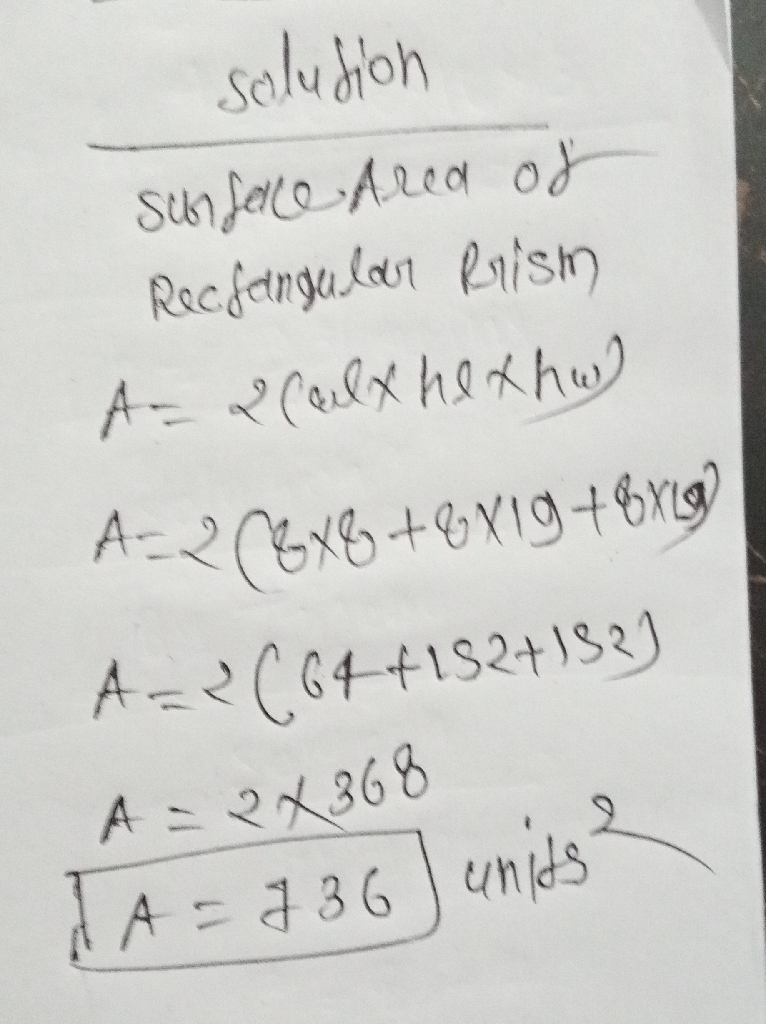 solution
surface Area of
Rectangular Prism
A = 2(wl x hl x hw)
A = 2(8x8 + 8x19 + 8x19)
A = 2(64 + 152 + 152)
A = 2 x 368
A = 736 units²